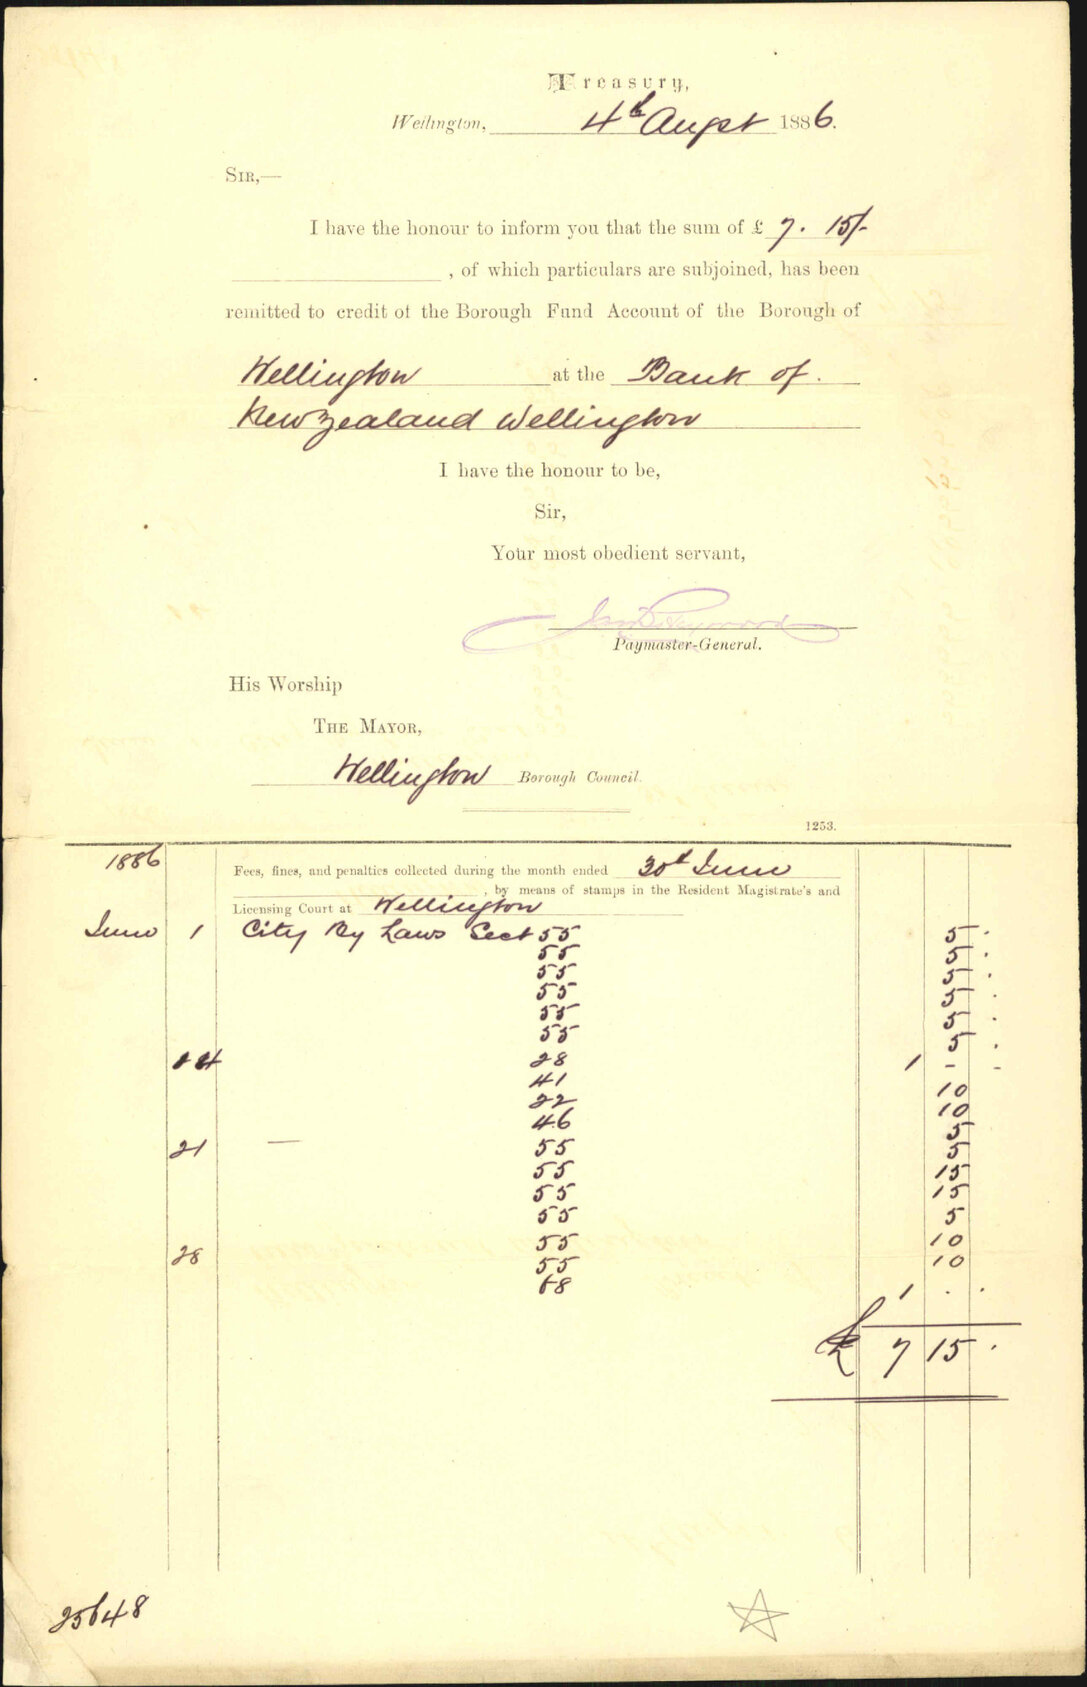 Treasury,
Wellington, 4th Augst 1886.
SIR,—
I have the honour to inform you that the sum of £ 7. 15/-
, of which particulars are subjoined, has been
remitted to credit of the Borough Fund Account of the Borough of
Wellington at the Bank of
New Zealand Wellington
I have the honour to be,
Sir,
Your most obedient servant,
Paymaster-General.
His Worship
THE MAYOR,
Wellington Borough Council.
1253.
1886 Fees, fines, and penalties collected during the month ended 30th June
, by means of stamps in the Resident Magistrate's and
Licensing Court at Wellington
June 1 City By Laws Sect 55 5 .
55 5 .
55 5 .
55 5 .
55 5 .
55 5 .
24 28 1 - -
41 10
22 10
46 5
21 — 55 5
55 15
55 15
55 5
28 55 10
55 10
68 1 . .
£ 7 15 .
25648